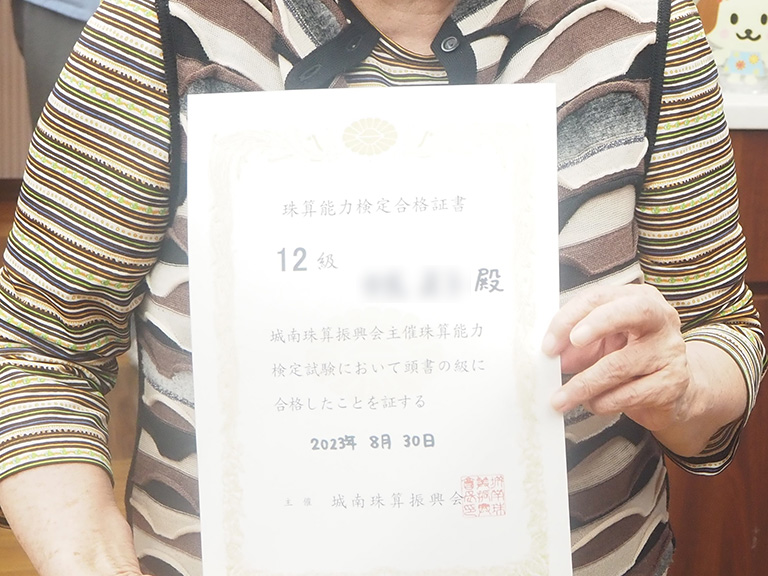 珠算能力検定合格証書
12級
殿
城南珠算振興会主催珠算能力
検定試験において頭書の級に
合格したことを証する
2023年 8月 30日
主催 城南珠算振興会